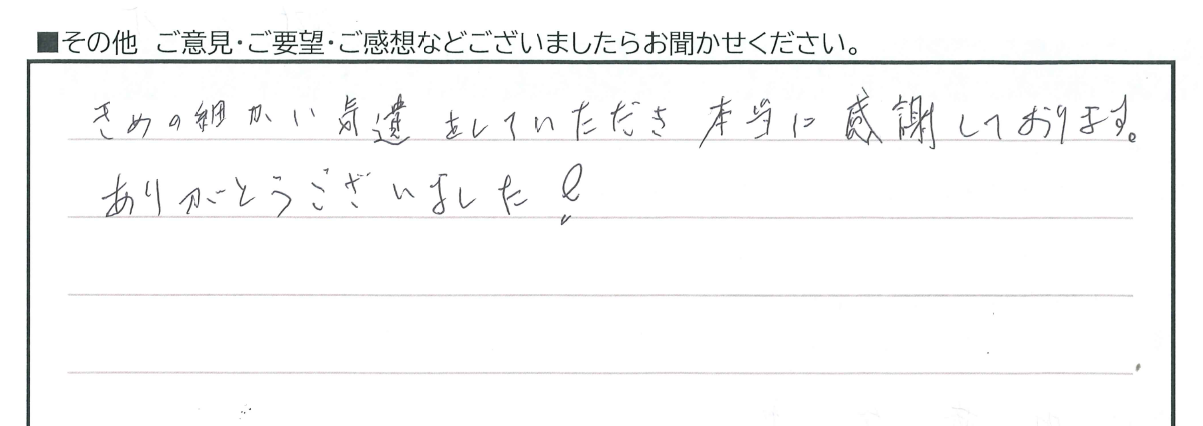 ■その他 ご意見・ご要望・ご感想などございましたらお聞かせください。
きめの細かい気遣をしていただき本当に感謝しております。
ありがとうございました!